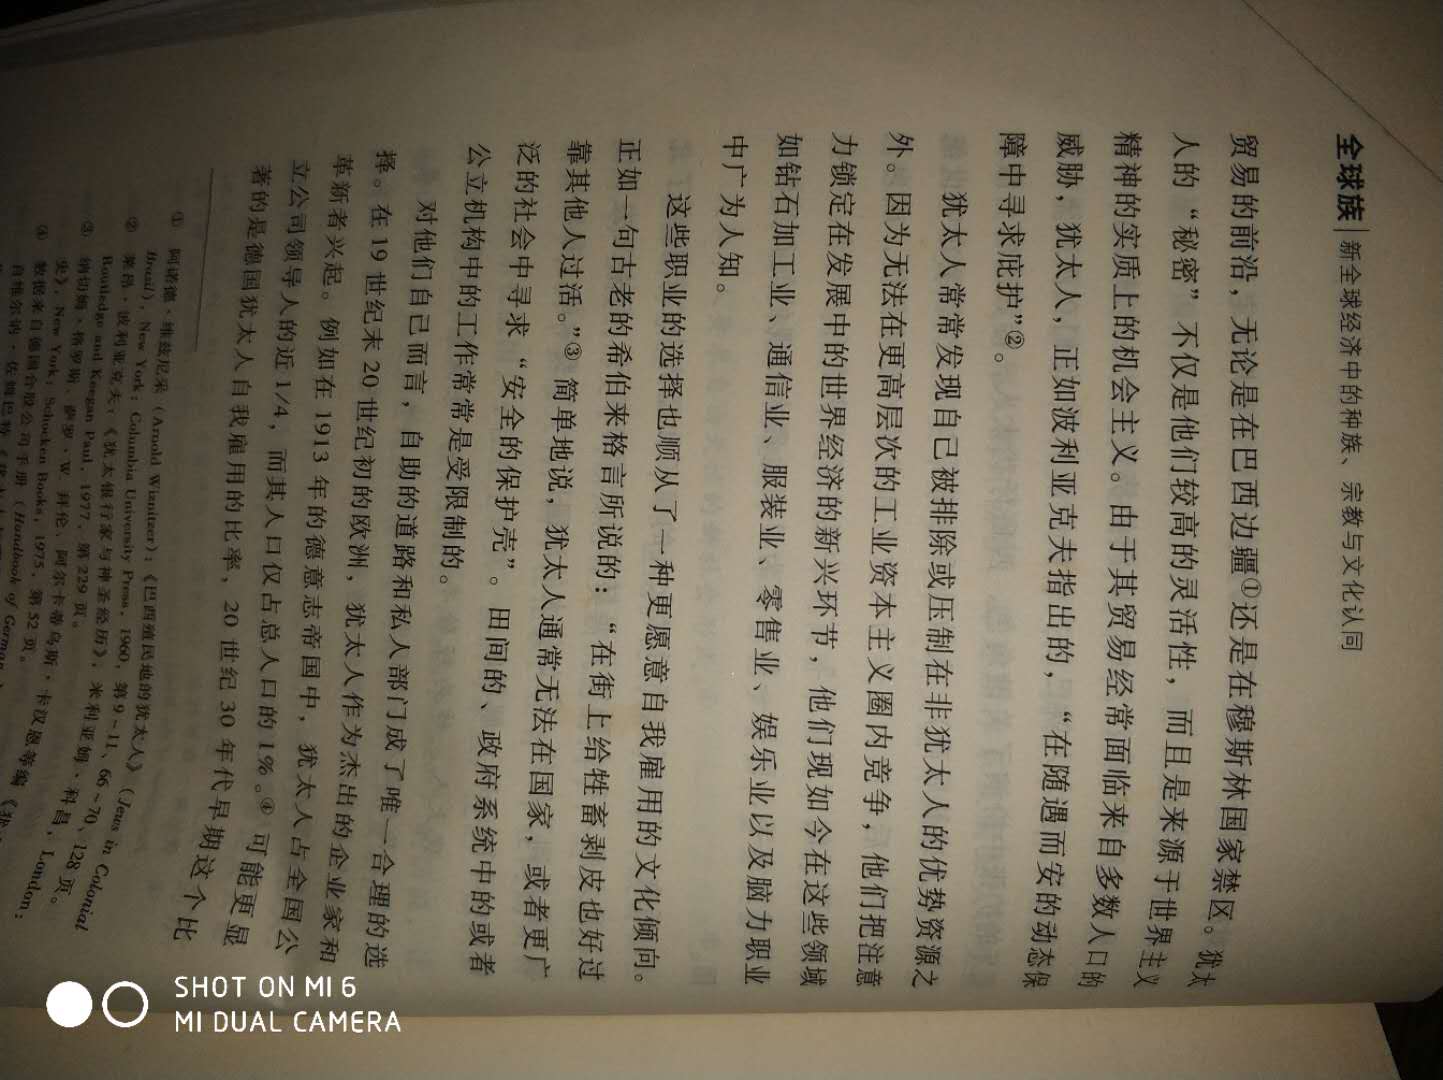 全球族|新全球经济中的种族、宗教与文化认同
贸易的前沿，无论是在巴西边疆①还是在穆斯林国家禁区。犹太
人的“秘密”不仅是他们较高的灵活性，而且是来源于世界主义
精神的实质上的机会主义。由于其贸易经常面临来自多数人口的
威胁，犹太人，正如波利亚克夫指出的，“在随遇而安的动态保
障中寻求庇护”②。
犹太人常常发现自己被排除或压制在非犹太人的优势资源之
外。因为无法在更高层次的工业资本主义圈内竞争，他们把注意
力锁定在发展中的世界经济的新兴环节，他们现如今在这些领域
如钻石加工业、通信业、服装业、零售业、娱乐业以及脑力职业
中广为人知。
这些职业的选择也顺从了一种更愿意自我雇用的文化倾向。
正如一句古老的希伯来格言所说的：“在街上给牲畜剥皮也好过
靠其他人过活。”③ 简单地说，犹太人通常无法在国家，或者更广
泛的社会中寻求“安全的保护壳”。田间的、政府系统中的或者
公立机构中的工作常常是受限制的。
对他们自己而言，自助的道路和私人部门成了唯一合理的选
择。在19世纪末20世纪初的欧洲，犹太人作为杰出的企业家和
革新者兴起。例如在1913年的德意志帝国中，犹太人占全国公
立公司领导人的近1/4，而其人口仅占总人口的1%。④ 可能更显
著的是德国犹太人自我雇用的比率，20世纪30年代早期这个比
① 阿诺德·维兹尼采（Arnold Wiznitzer）：《巴西殖民地的犹太人》（Jews in Colonial
Brazil），New York：Columbia University Press，1960，第9~11、66~70、128页。
② 莱昂·波利亚克夫：《犹太银行家与神圣经历》，米利亚姆·科昌，London：
Routledge and Keegan Paul，1977，第229页。
③ 纳切姆·格罗斯、萨罗·W.拜伦、阿尔卡蒂乌斯·卡汉恩等编《犹
史》，New York：Schocken Books，1975，第52页。
④ 数据来自德国合股公司手册（Handbook of German
自维尔讷·
SHOT ON MI 6
MI DUAL CAMERA